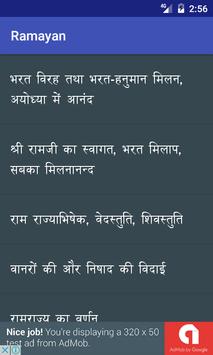 4G 2:56
Ramayan
भरत विरह तथा भरत-हनुमान मिलन,
अयोध्या में आनंद
श्री रामजी का स्वागत, भरत मिलाप,
सबका मिलनानन्द
राम राज्याभिषेक, वेदस्तुति, शिवस्तुति
वानरों की और निषाद की विदाई
रामराज्य का वर्णन
Nice job! You're displaying a 320 x 50
test ad from AdMob.
AdMob by Google